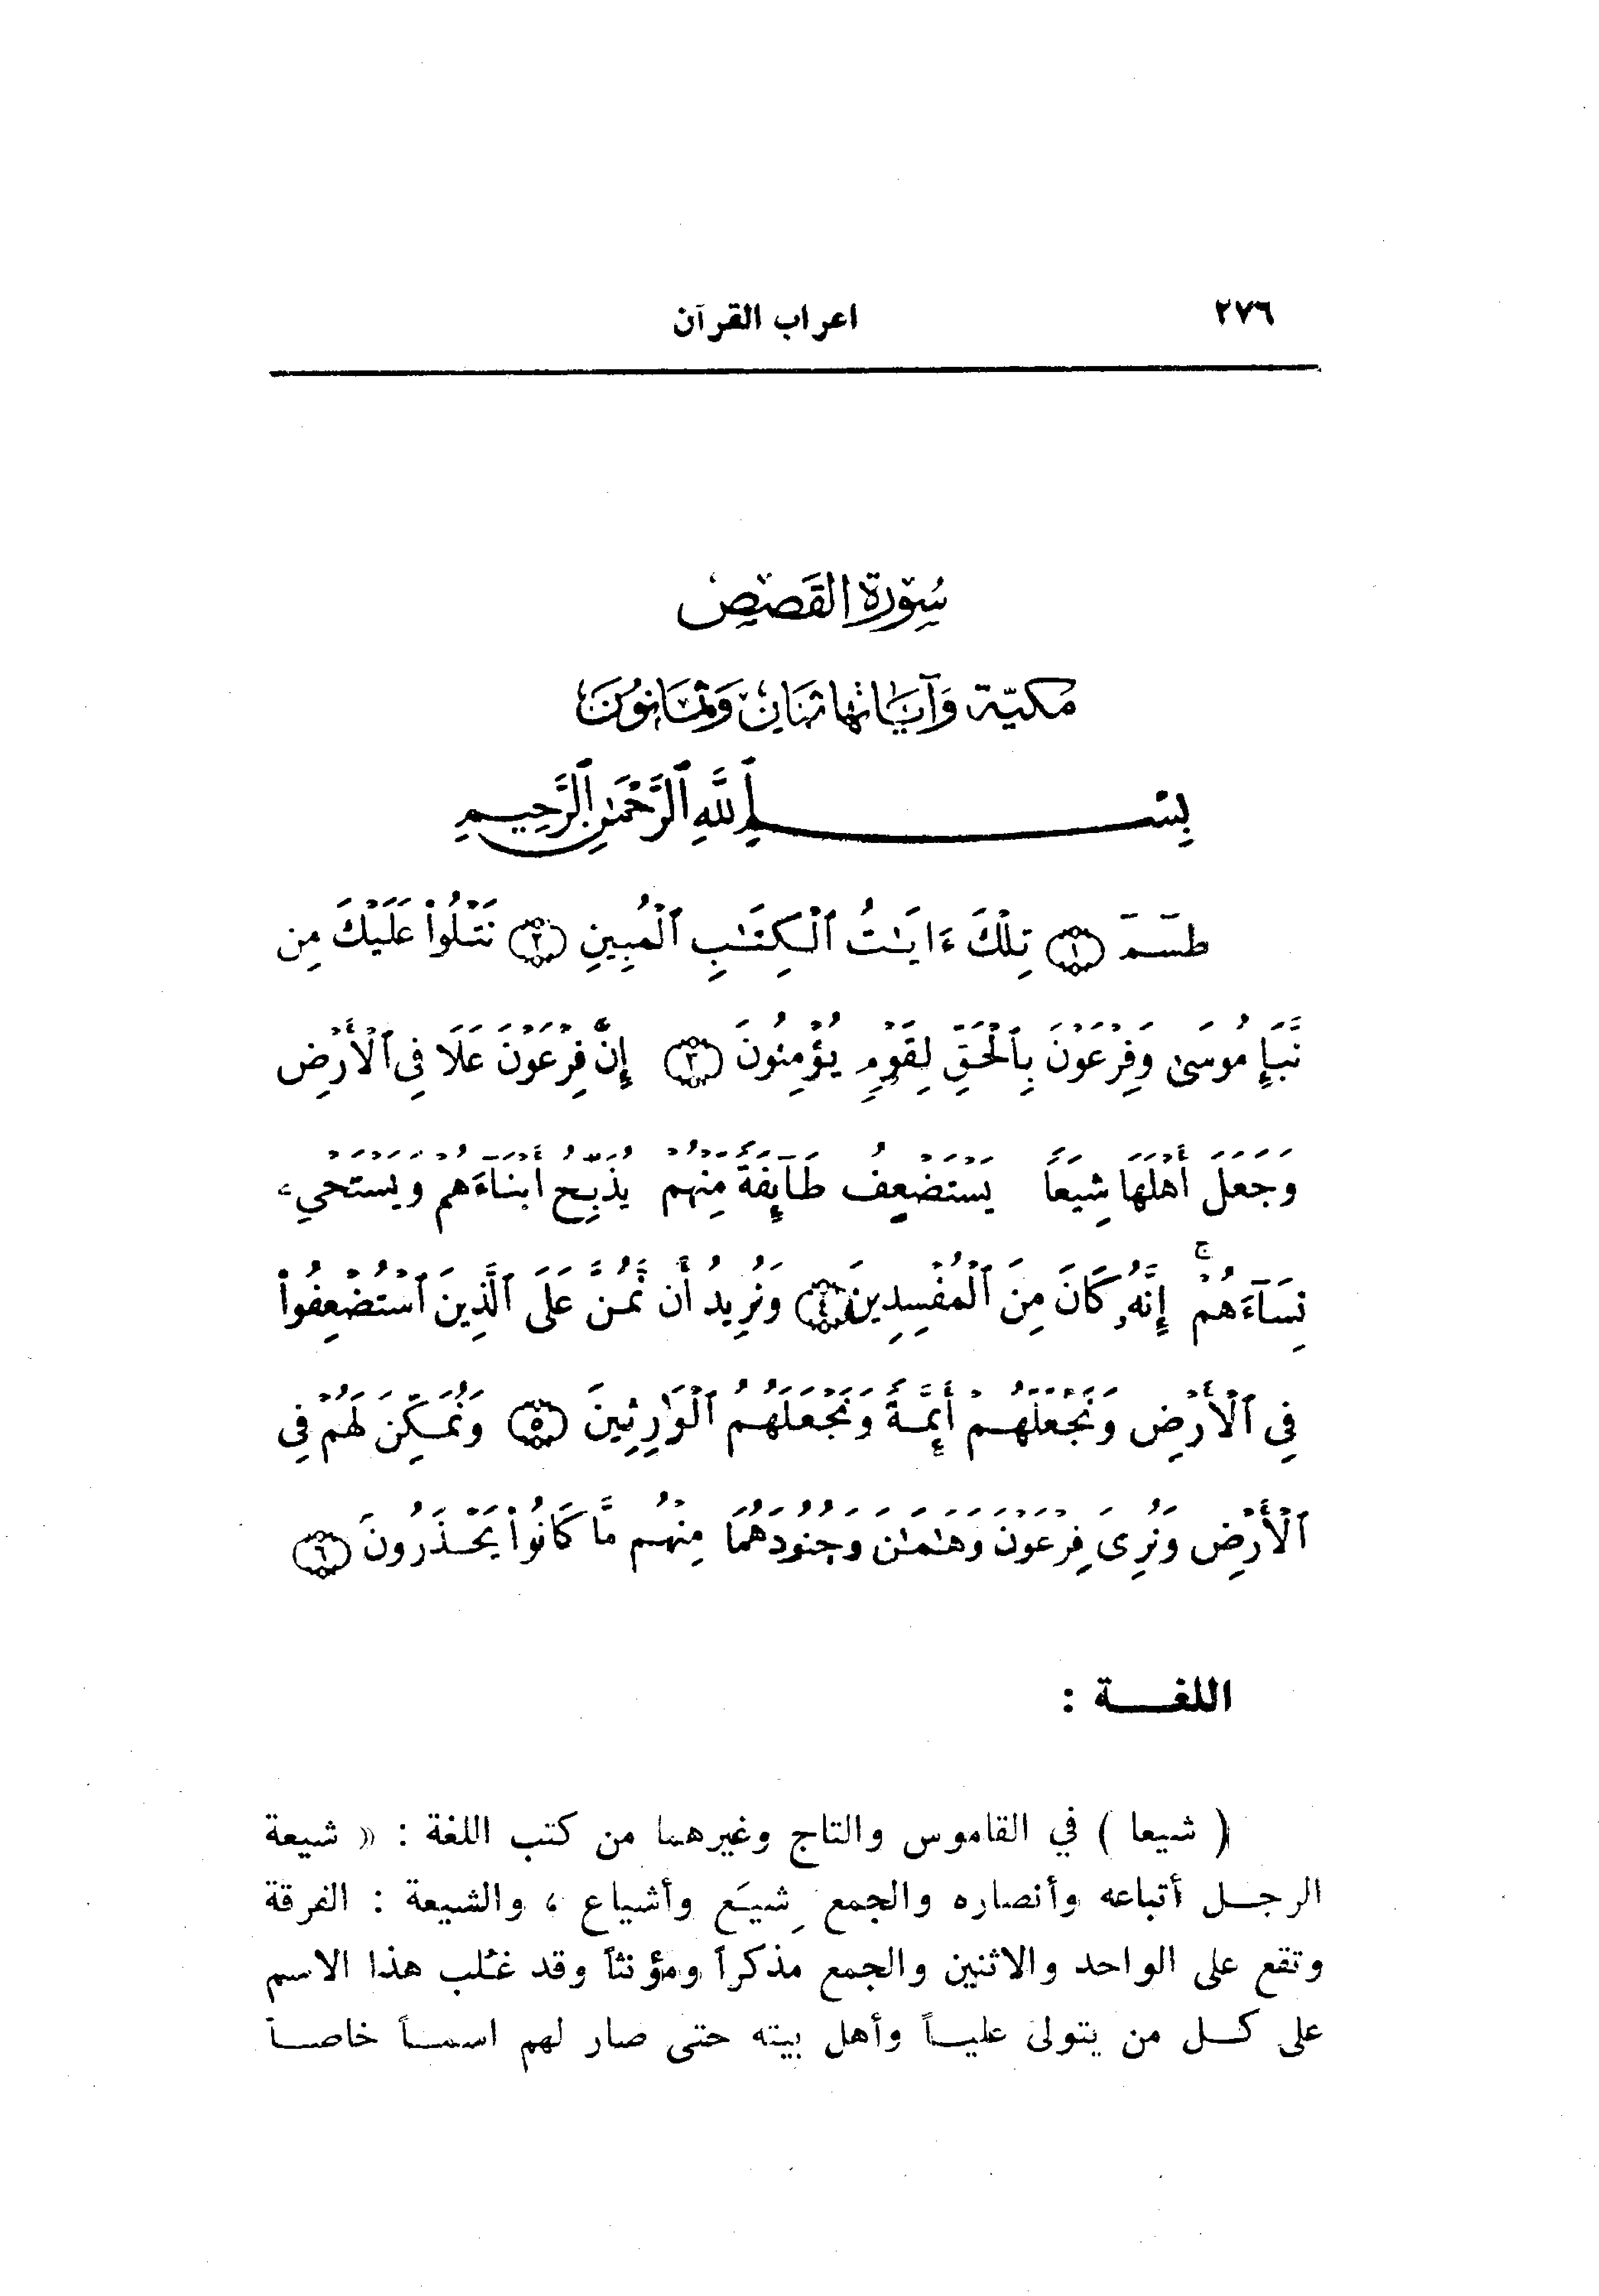 ٢٧٦ اعراب القرآن
سُورَة القَصَصِ
مَكيّة وَآيَاتها ثَمَنانِ وَثَمَانُونَ
بِسْمِ ٱللَّهِ ٱلرَّحْمَٰنِ ٱلرَّحِيمِ
طسٓمٓ ١ تِلْكَ ءَايَٰتُ ٱلْكِتَٰبِ ٱلْمُبِينِ ٢ نَتْلُوا۟ عَلَيْكَ مِن
نَّبَإِ مُوسَىٰ وَفِرْعَوْنَ بِٱلْحَقِّ لِقَوْمٍ يُؤْمِنُونَ ٣ إِنَّ فِرْعَوْنَ عَلَا فِى ٱلْأَرْضِ
وَجَعَلَ أَهْلَهَا شِيَعًا يَسْتَضْعِفُ طَآئِفَةً مِّنْهُمْ يُذَبِّحُ أَبْنَآءَهُمْ وَيَسْتَحْىِۦ
نِسَآءَهُمْ ۚ إِنَّهُۥ كَانَ مِنَ ٱلْمُفْسِدِينَ ٤ وَنُرِيدُ أَن نَّمُنَّ عَلَى ٱلَّذِينَ ٱسْتُضْعِفُوا۟
فِى ٱلْأَرْضِ وَنَجْعَلَهُمْ أَئِمَّةً وَنَجْعَلَهُمُ ٱلْوَٰرِثِينَ ٥ وَنُمَكِّنَ لَهُمْ فِى
ٱلْأَرْضِ وَنُرِىَ فِرْعَوْنَ وَهَٰمَٰنَ وَجُنُودَهُمَا مِنْهُم مَّا كَانُوا۟ يَحْذَرُونَ ٦
اللغـــة :
( شيعا ) في القاموس والتاج وغيرهما من كتب اللغة : « شيعة
الرجــل أتباعه وأنصاره والجمع شِيَع وأشياع ، والشيعة : الفرقة
وتقع على الواحد والاثنين والجمع مذكراً ومؤنثاً وقد غلب هذا الاسم
على كــل من يتولى عليــاً وأهل بيته حتى صار لهم اسمــاً خاصــاً